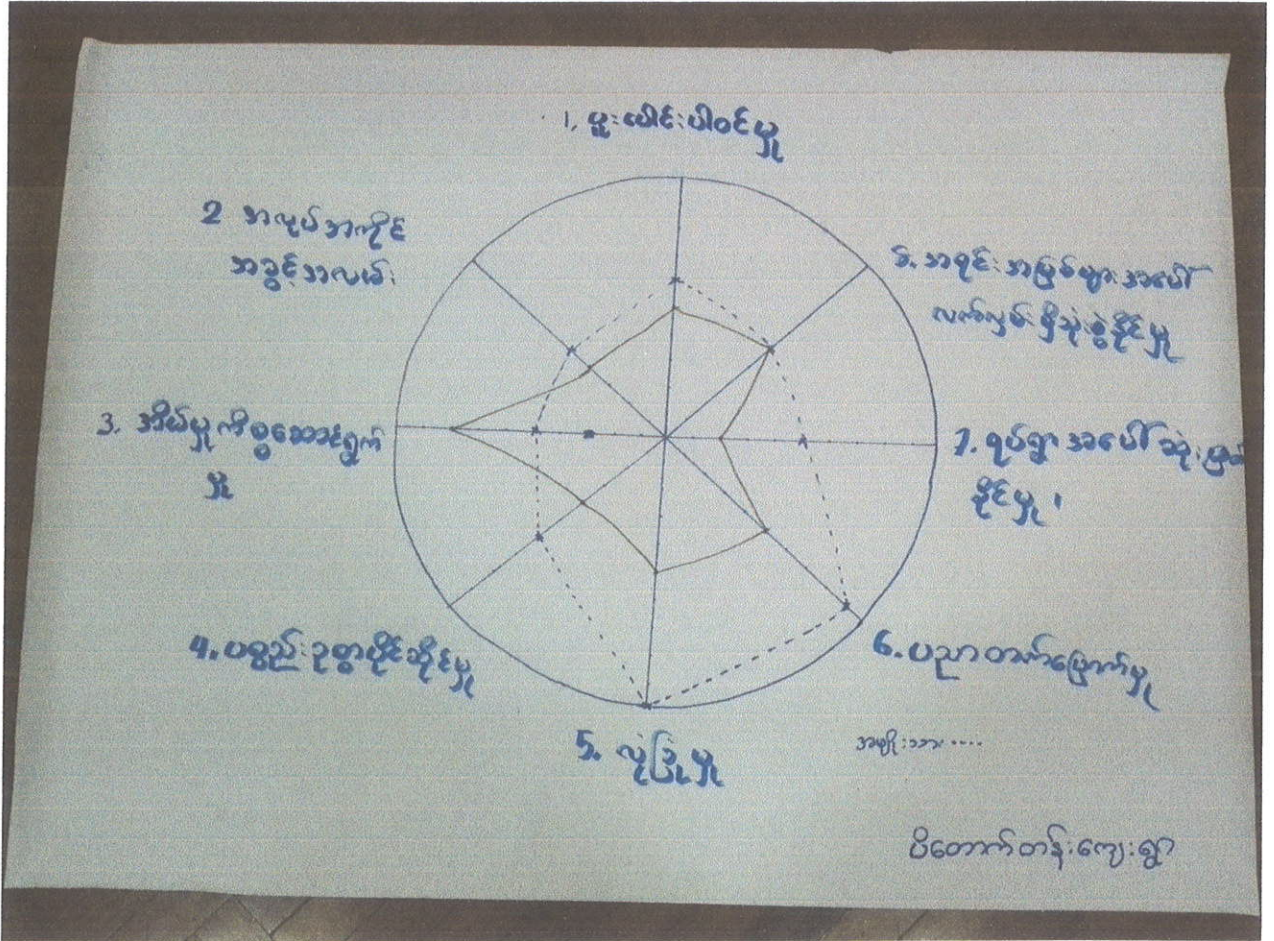 1, ပူးပေါင်းပါဝင်မှု
2 အလုပ်အကိုင်
အခွင့်အလမ်း
3. အိမ်မှုကိစ္စဆောင်ရွက်
မှု
4. ပစ္စည်းဥစ္စာပိုင်ဆိုင်မှု
5. လုံခြုံမှု
6. ပညာတတ်မြောက်မှု
7. ရပ်ရွာအပေါ်ဆုံးဖြတ်
နိုင်မှု ၊
8. အရင်းအမြစ်များအပေါ်
လက်လှမ်းမှီသုံးစွဲနိုင်မှု
အမျိုးသား ....
ပိတောက်တန်းကျေးရွာ